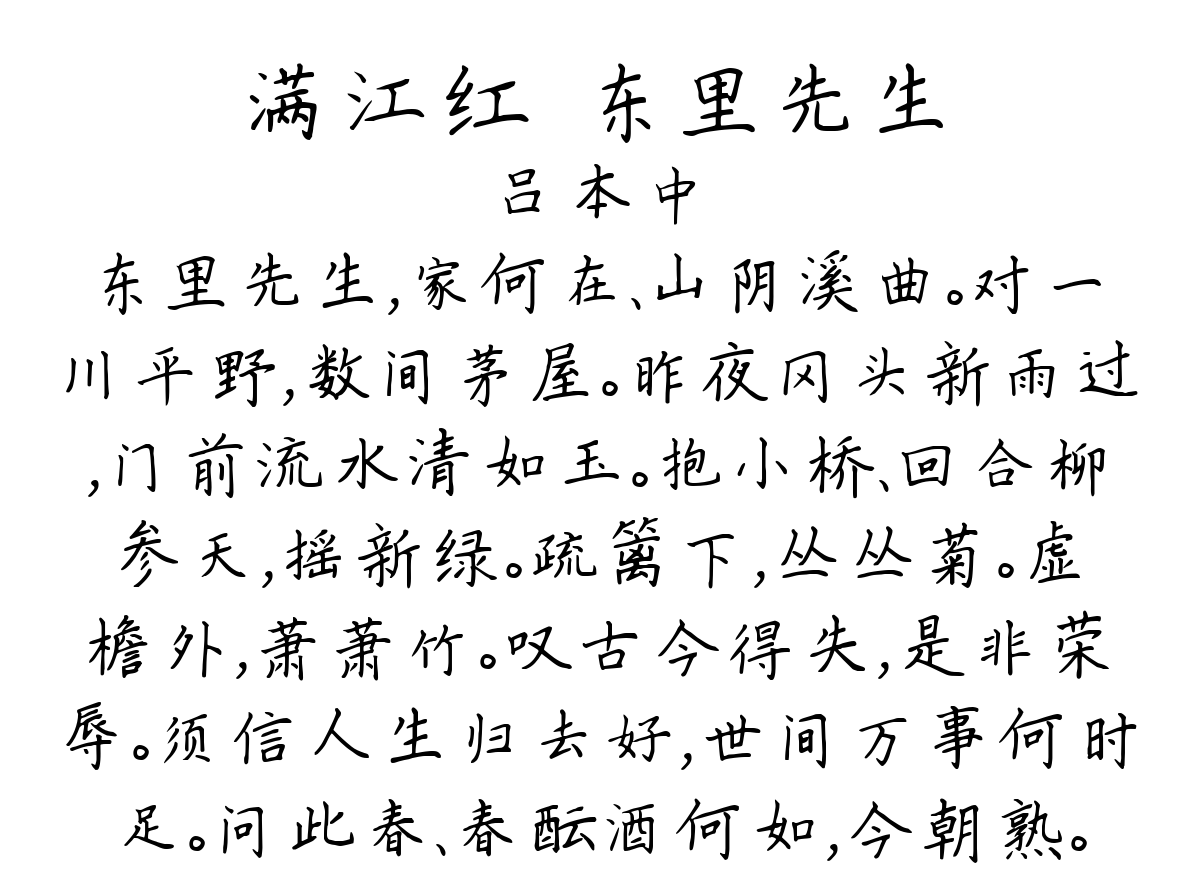 满江红 东里先生
吕本中
东里先生,家何在、山阴溪曲。对一
川平野,数间茅屋。昨夜冈头新雨过
,门前流水清如玉。抱小桥、回合柳
参天,摇新绿。疏篱下,丛丛菊。虚
檐外,萧萧竹。叹古今得失,是非荣
辱。须信人生归去好,世间万事何时
足。问此春、春酝酒何如,今朝熟。